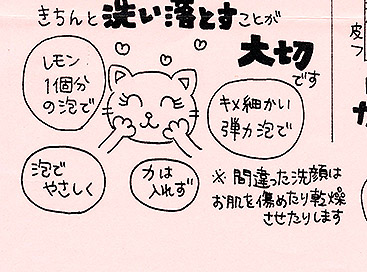 きちんと洗い落とすことが
大切
です
レモン
1個分
の泡で
キメ細かい
弾力泡で
泡で
やさしく
力は
入れず
※ 間違った洗顔は
お肌を傷めたり乾燥
させたりします
皮